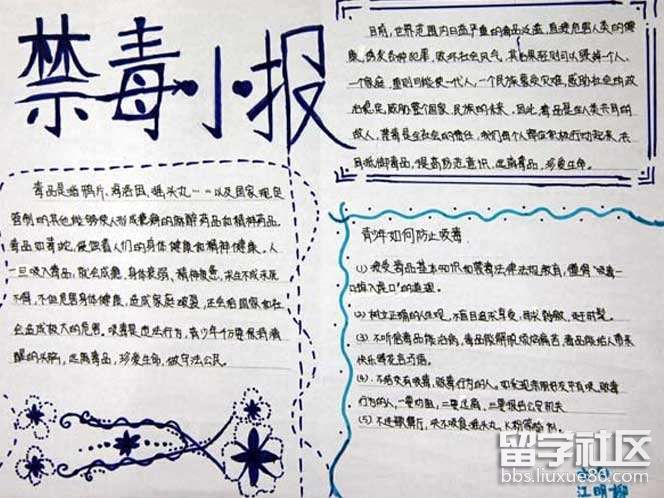 禁毒小报
目前,世界范围内日益严重的毒品泛滥,直接危害人类的健
康,诱发各种犯罪,败坏社会风气,其后果轻则可以毁掉一个人、
一个家庭,重则可能使一代人,一个民族蒙受灾难,威胁社会的政
治稳定,威胁整个国家、民族的未来。因此,毒品是全人类共同的
敌人,禁毒是全社会的责任,我们每个人都应积极行动起来,共
同抵御毒品,提高防范意识,远离毒品,珍爱生命。
毒品是指鸦片、海洛因、摇头丸……以及国家规定
管制的其他能够使人形成瘾癖的麻醉药品和精神药品。
毒品如毒蛇,侵蚀着人们的身体健康和精神健康。人
一旦吸入毒品,就会成瘾,身体衰弱,精神疲惫,求生不成求死
不得,不但危害身体健康,造成家庭破裂,还会给国家和社
会造成极大的危害。吸毒是违法行为,青少年千万要保持清
醒的头脑,远离毒品,珍爱生命,做守法公民。
青少年如何防止吸毒
(1)接受毒品基本知识和禁毒法律法规教育,懂得“吸毒一
口,掉入虎口”的道理。
(2)树立正确的人生观,不盲目追求享受,寻求刺激,赶时髦。
(3)不听信毒品能治病,毒品能解脱烦恼痛苦,毒品能给人带来
快乐等花言巧语。
(4)不结交有吸毒、贩毒行为的人。如发现亲朋好友中有吸、贩毒
行为的人,一要劝阻,二要远离,三要报告公安机关
(5)不进歌舞厅,决不吸食摇头丸、K粉等
江明
留学社区
bbs.liuxue86.com